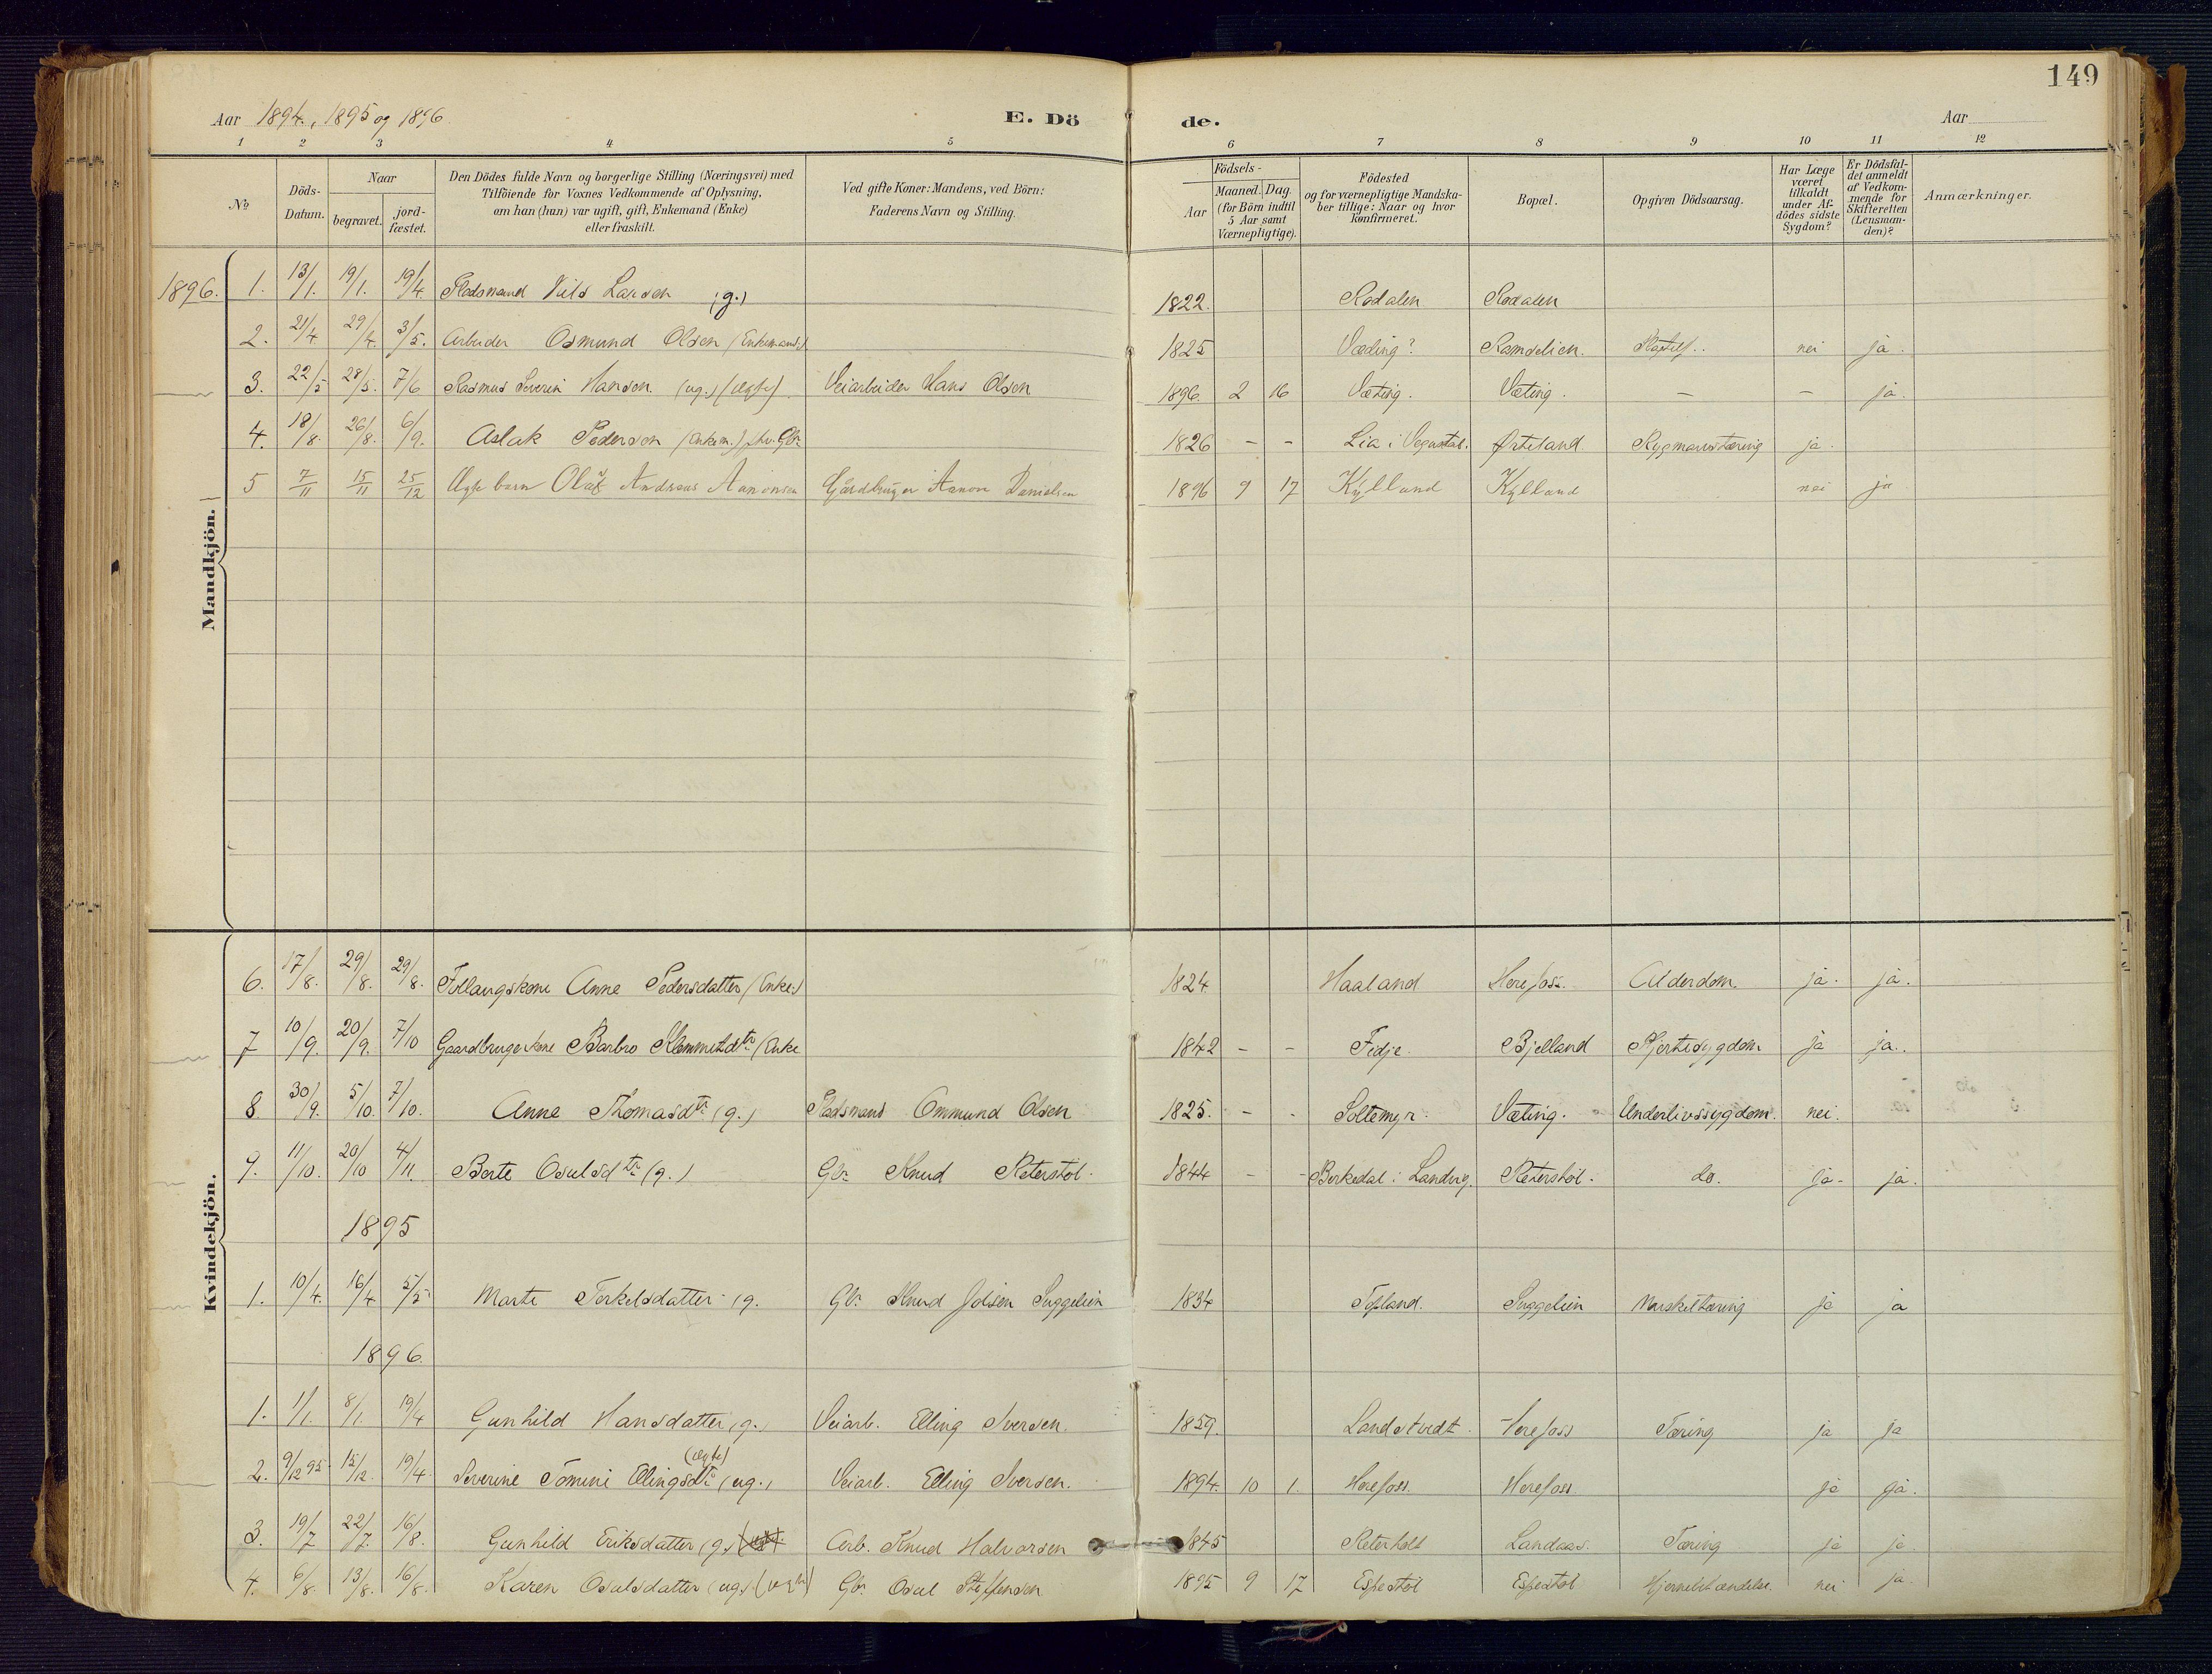 149
Aar 1894, 1895 og 1896
E. Dö de.
Aar
1 2 3 4 5 6 7 8 9 10 11 12
No
Döds-Datum.
Naar
begravet.
jord-fæstet.
Den Dödes fulde Navn og borgerlige Stilling (Næringsvei) med
Tilföiende for Voxnes Vedkommende af Oplysning,
om han (hun) var ugift, gift, Enkemand (Enke)
eller fraskilt.
Ved gifte Koner: Mandens, ved Börn:
Faderens Navn og Stilling.
Födsels-
Aar
Maaned. Dag.
(for Börn indtil
5 Aar samt
Værnepligtige).
Födested
og for værnepligtige Mandska-
ber tillige: Naar og hvor
konfirmeret.
Bopæl.
Opgiven Dödsaarsag.
Har Læge
været
tilkaldt
under Af-
dödes sidste
Sygdom?
Er Dödsfal-
det anmeldt
af Vedkom-
mende for
Skifteretten
(Lensman-
den)?
Anmærkninger.
Mandkjön.
1896. 1. 13/1. 19/1. 19/4. Pladsmand Nils Larsen (g.) 1822. Rodalen Rodalen
2. 21/4. 29/4. 3/5. Arbeider Osmund Olsen (Enkemand.) 1825 Væding? Ramselien. nei ja.
3. 22/5 28/5. 7/6 Rasmus Severin Hansen (ug.) (ægte) Veiarbeider Hans Olsen 1896. 2 16 Væting. Væting. - - ja.
4. 18/8. 26/8. 6/9. Aslak Pederson (enkem.) fhv. Gbr. 1826 - - Lia i Vegusdal. Örteland. Rygmarvstæring ja.
5 7/11 15/11 25/12 Ægte barn Olaf Andreas Aanonsen Gårdbruger Aanon Danielsen 1896 9 17 Kylland Kylland nei ja
Kvindekjön.
6. 17/8. 29/8. 29/8. Follaugskone Anne Pedersdatter (Enke.) 1824. Haaland Herefoss. Alderdom. ja. ja.
7 10/9. 20/9. 7/10 Gaardbrugerkone Barbro Klemmetsdtr. (Enke 1842 - - Fidje. Bjelland Hjertesygdom ja ja.
8 30/9. 5/10. 7/10. Anne Thomasdtr. (g.) Pladsmand Ommund Olsen 1825. - - Soltemyr Væting. Underlivssygdom. nei.
9. 11/10. 20/10 4/11. Berte Osulsdtr. (g.) Gbr. Knud Retterstöl. 1844 - - Berkedal i Landvig. Retterstöl. do. ja. ja.
1895
1. 10/4. 16/4. 5/5 Marte Terkelsdatter (g. Gbr. Knud Jolsen Suggelien 1834 Topland. Suggelien Marskeltæring ja ja
1896.
1. 1/1. 8/1. 19/4 Gunhild Hansdatter (g.) Veiarb. Elling Iversen. 1859. Landstvedt Herefoss Tæring ja ja
2. 9/12 95 15/12. 19/4. Severine Tomini Ellingsdtr. (ug.) (ægte) Veiarb. Elling Iversen. 1894. 10 1. Herefoss. Herefoss. ja ja.
3. 19/7 22/7. 16/8. Gunhild Eriksdatter (g.) Arb. Knud Halvorsen 1845 Landaas. Tæring ja ja
4. 6/8. 13/8. 16/8. Karen Osulsdatter (ug.) (ægte) Gbr. Osul Steffensen 1895 9 17 Espestöl Espestöl Hjernebetændelse. nei ja.